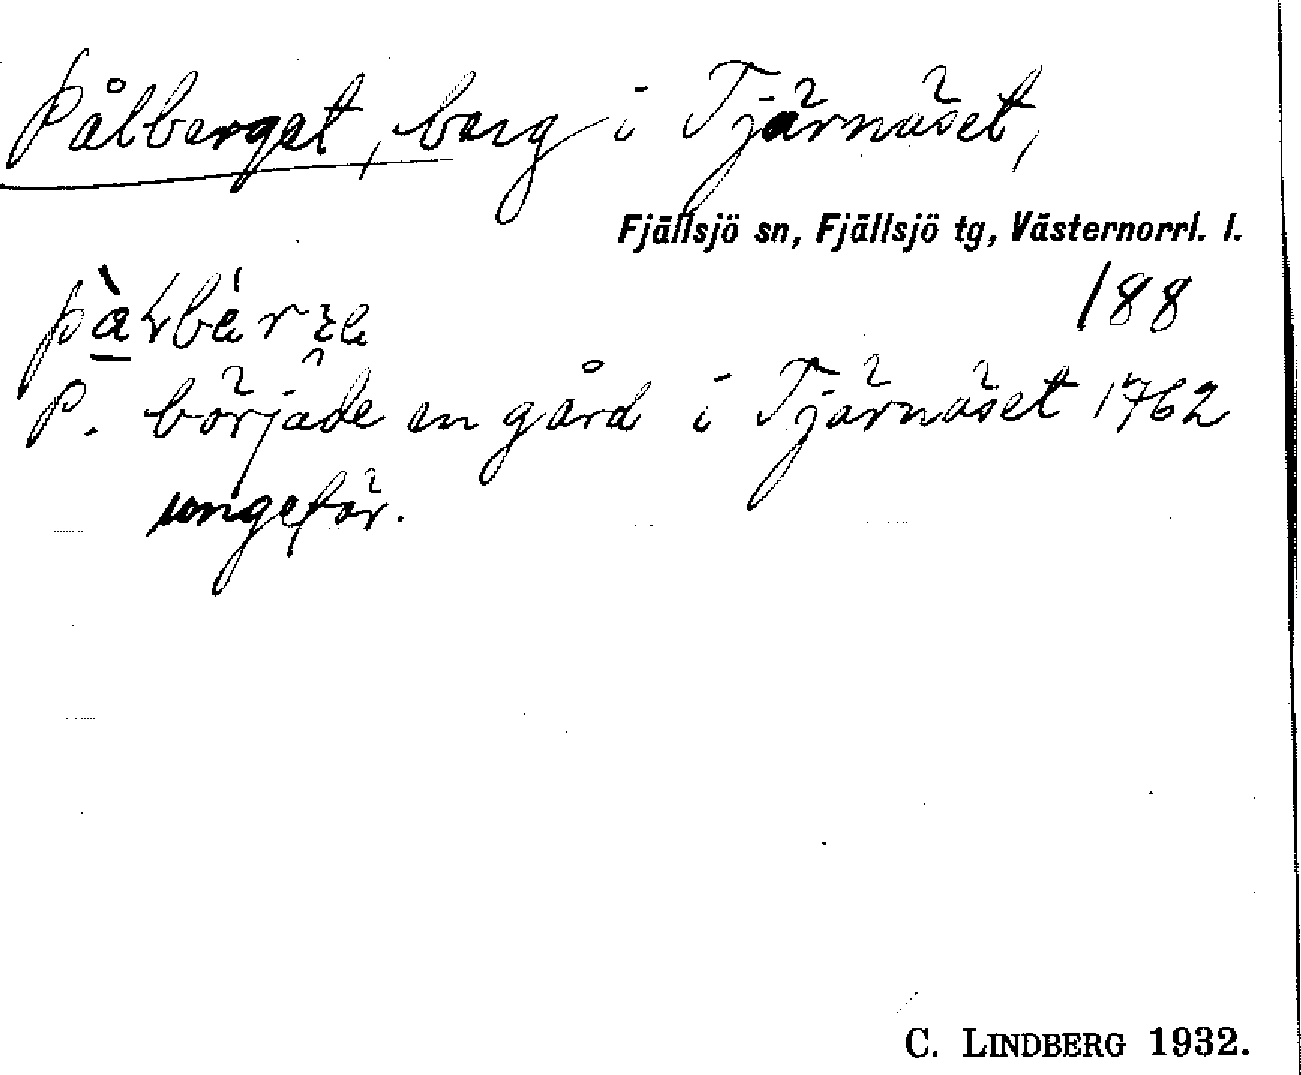 Pålberget, berg i Tjärnäset,
Fjällsjö sn, Fjällsjö tg, Västernorrl. l.
188
P. började en gård i Tjärnäset 1762
ungefär.
C. LINDBERG 1932.